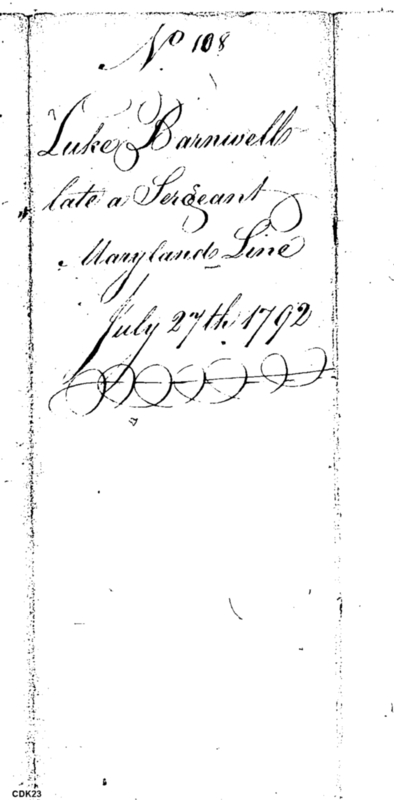 No 108
Luke Barnwell
late a Sergeant
Maryland Line
July 27th 1792
CDK23